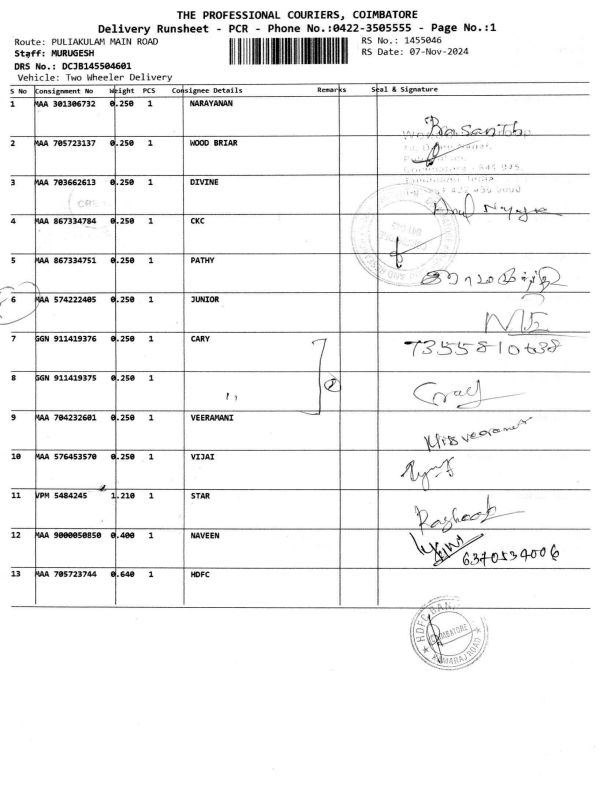 THE PROFESSIONAL COURIERS, COIMBATORE
Delivery Runsheet - PCR - Phone No.:0422-3505555 - Page No.:1
Route: PULIAKULAM MAIN ROAD RS No.: 1455046
Staff: MURUGESH RS Date: 07-Nov-2024
DRS No.: DCJB145504601
Vehicle: Two Wheeler Delivery
S No Consignment No Weight PCS Consignee Details Remarks Seal & Signature
1 MAA 301306732 0.250 1 NARAYANAN
2 MAA 705723137 0.250 1 WOOD BRIAR
3 MAA 703662613 0.250 1 DIVINE
4 MAA 867334784 0.250 1 CKC
5 MAA 867334751 0.250 1 PATHY
6 MAA 574222405 0.250 1 JUNIOR
7 GGN 911419376 0.250 1 CARY 7355810638
8 GGN 911419375 0.250 1 ,,
9 MAA 704232601 0.250 1 VEERAMANI
10 MAA 576453570 0.250 1 VIJAI
11 VPM 5484245 1.210 1 STAR
12 MAA 9000050850 0.400 1 NAVEEN 6370534006
13 MAA 705723744 0.640 1 HDFC
HDFC BANK
COIMBATORE